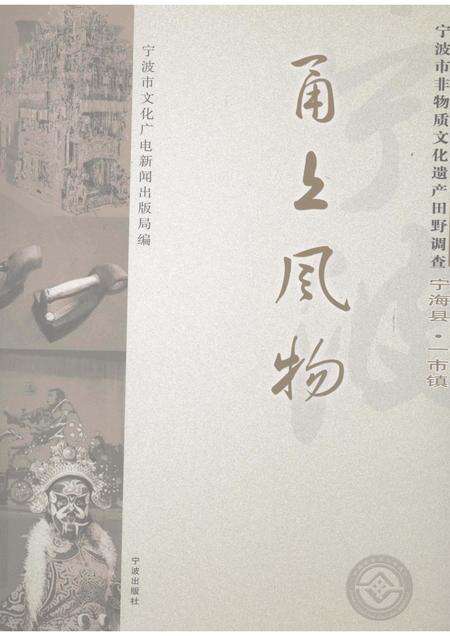 宁波市非物质文化遗产田野调查
宁海县·一市镇
甬上风物
宁波市文化广电新闻出版局编
宁波出版社